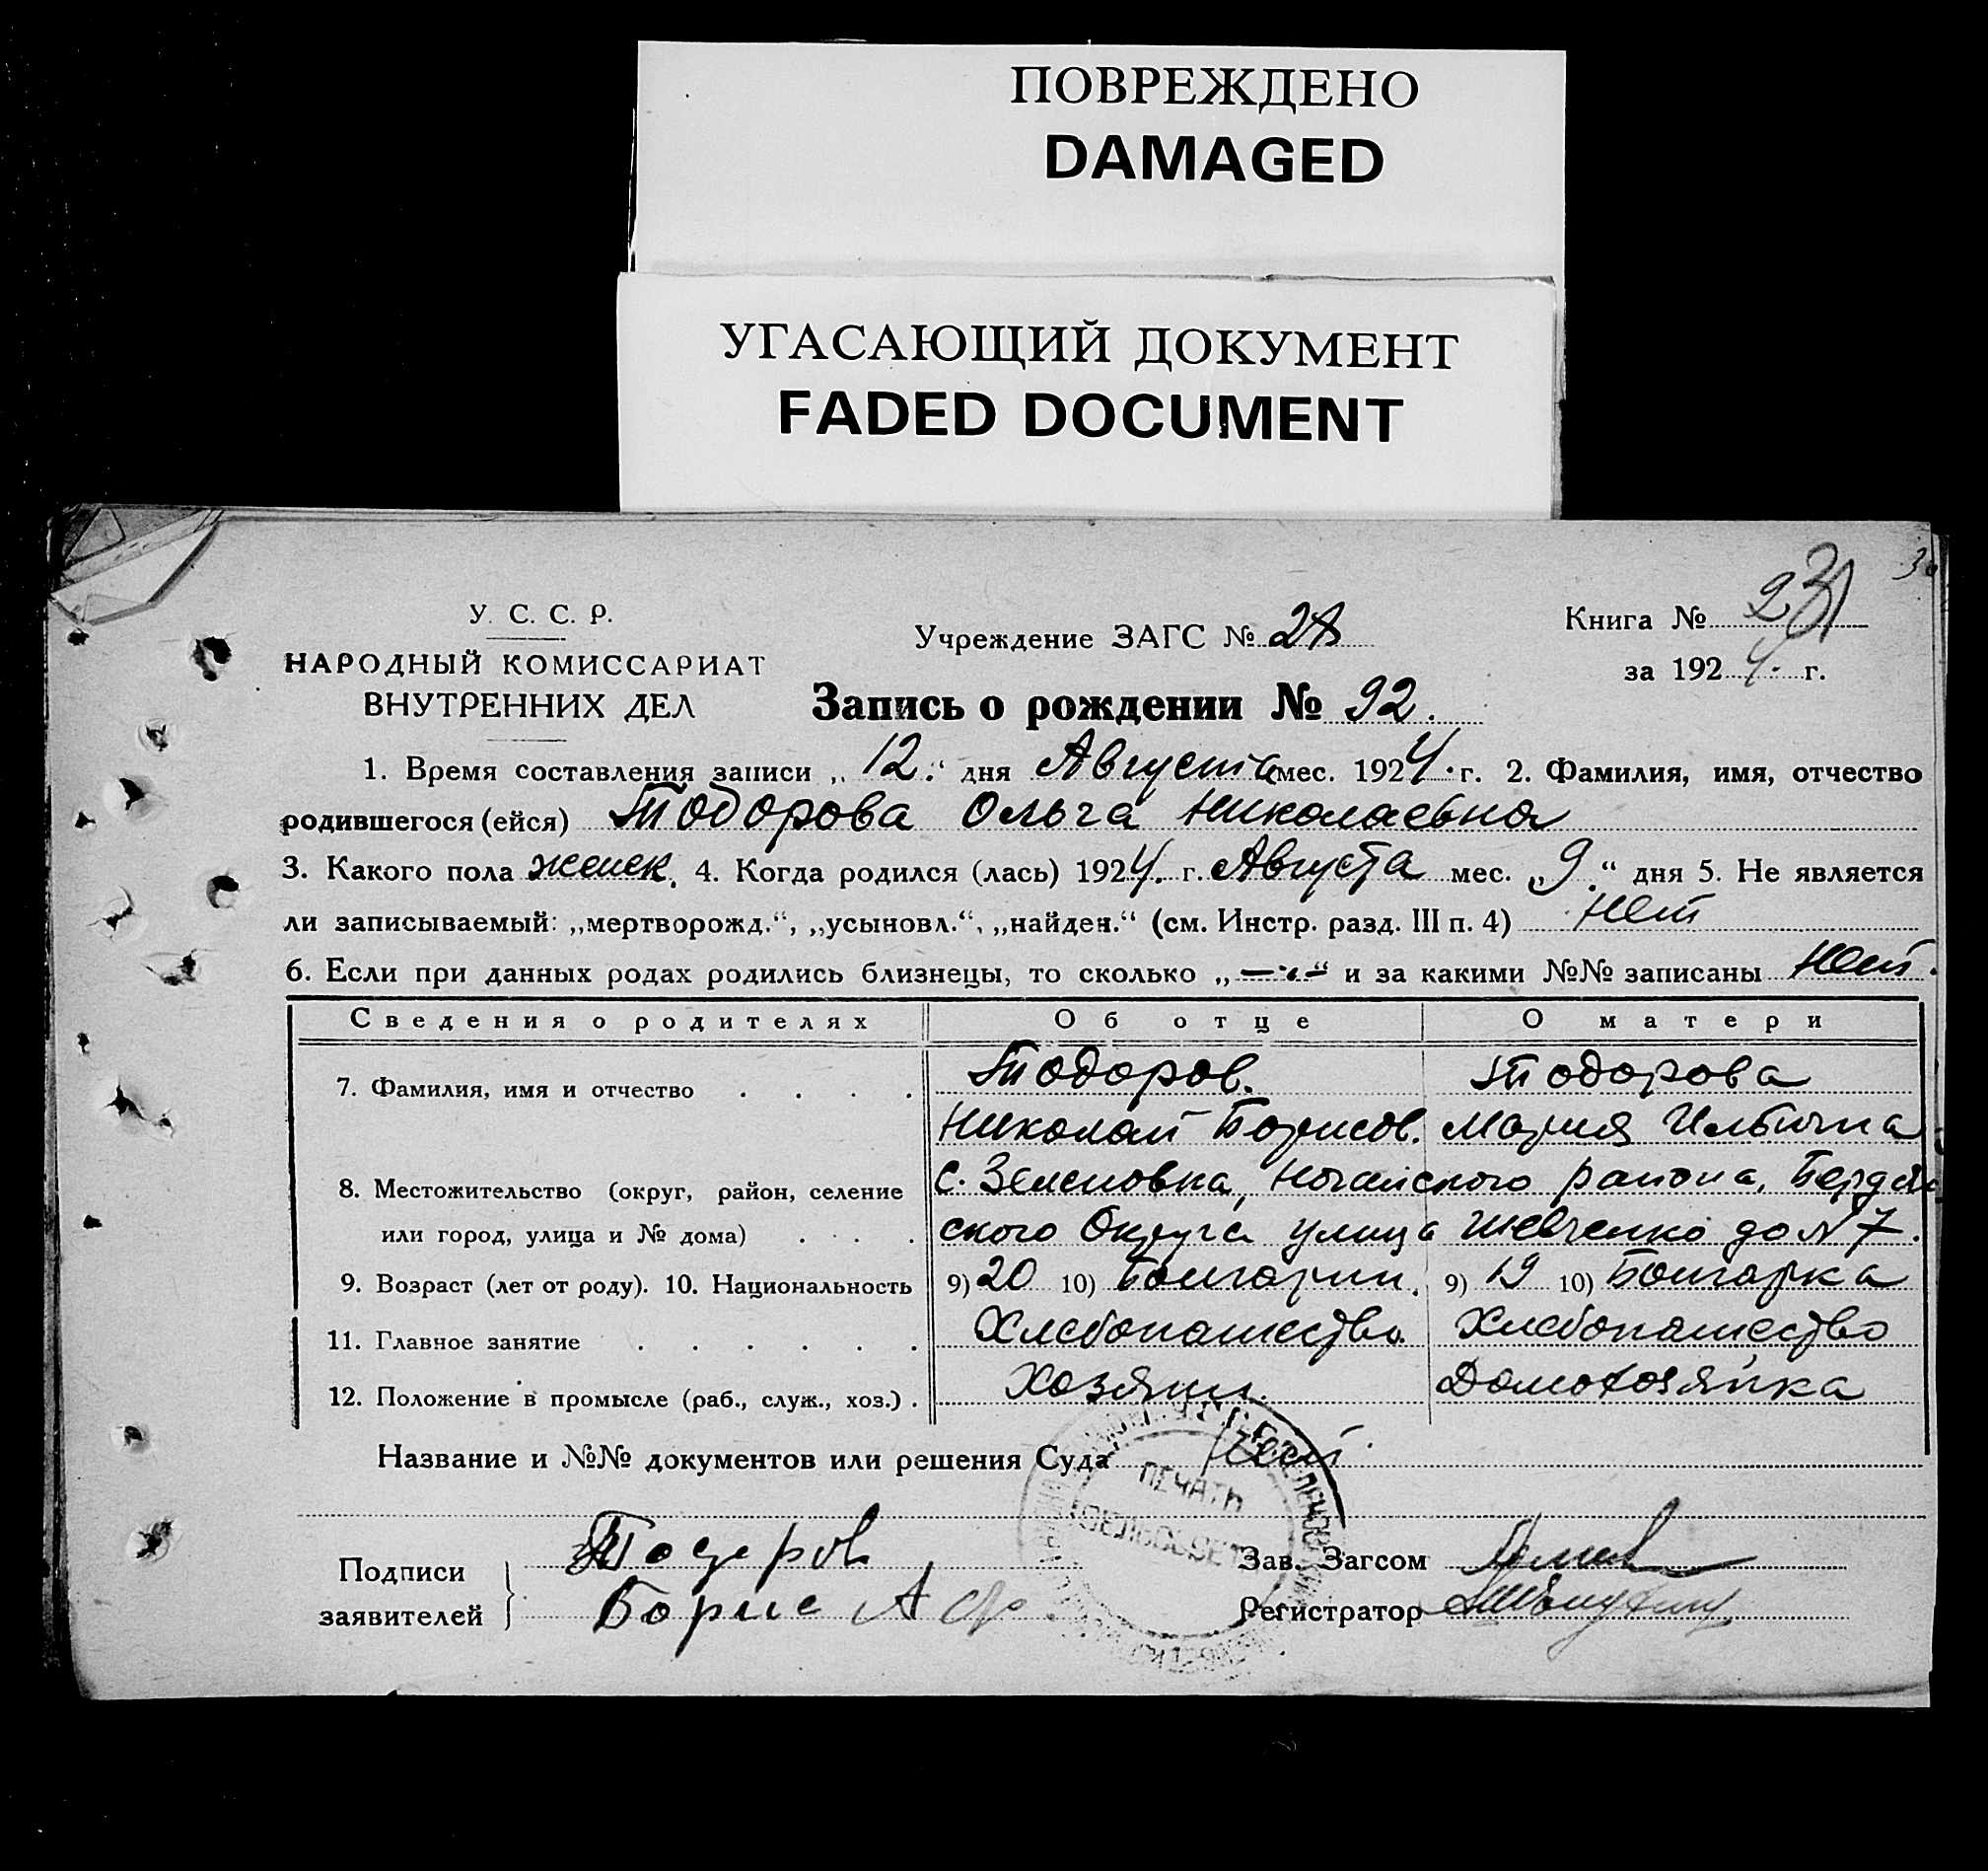 ПОВРЕЖДЕНО
DAMAGED
УГАСАЮЩИЙ ДОКУМЕНТ
FADED DOCUMENT
У. С. С. Р.
НАРОДНЫЙ КОМИССАРИАТ
ВНУТРЕННИХ ДЕЛ
Учреждение ЗАГС №
Книга №
за 1924 г.
Запись о рождении № 92.
1. Время составления записи „12.“ дня Августа мес. 1924. г. 2. Фамилия, имя, отчество
родившегося (ейся) Тодорова Ольга Николаевна
3. Какого пола женск. 4. Когда родился (лась) 1924. г. Августа мес. „9.“ дня 5. Не является
ли записываемый: „мертворожд.“, „усыновл.“, „найден.“ (см. Инстр. разд. III п. 4) Нет
6. Если при данных родах родились близнецы, то сколько „—“ и за какими №№ записаны Нет.
Сведения о родителях Об отце О матери
7. Фамилия, имя и отчество Тодоров. Тодорова
Николай Борисов. Мария Ильична
8. Местожительство (округ, район, селение с. Зеленовка, Ногайского района, Бердян
или город, улица и № дома) ского Округа улица Шевченко до № 7.
9. Возраст (лет от роду). 10. Национальность 9) 20 10) Болгарин. 9) 19 10) Болгарка
11. Главное занятие Хлебопашество Хлебопашество
12. Положение в промысле (раб., служ., хоз.) Хозяин. Домохозяйка
Название и №№ документов или решения Суда Нет.
ПЕЧАТЬ
СЕЛЬСОВЕТ
Подписи
заявителей
Тодеров
Борис
Зав. Загсом
Регистратор